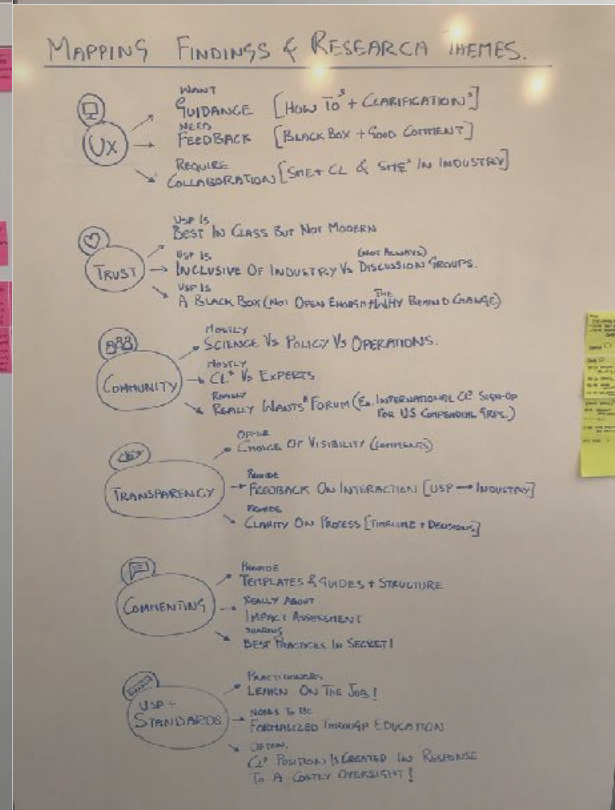 MAPPING FINDINGS & RESEARCH THEMES.
UX
WANT
GUIDANCE [HOW TO'S + CLARIFICATION'S]
NEED
FEEDBACK [BLACK BOX + GOOD COMMENT]
REQUIRE
COLLABORATION [SME + CL & SME'S IN INDUSTRY]
TRUST
USP IS
BEST IN CLASS BUT NOT MODERN
USP IS (NOT ALWAYS)
INCLUSIVE OF INDUSTRY VS DISCUSSION GROUPS.
USP IS
A BLACK BOX (NOT OPEN ENOUGH WHY THE BRAND CHANGE)
COMMUNITY
MOSTLY
SCIENCE VS POLICY VS OPERATIONS.
MOSTLY
CL'S VS EXPERTS
REALLY
REALLY WANTS FORUM (EX. INTERNATIONAL CL'S SIGN-UP
FOR US COMPENDIAL GRPS.)
TRANSPARENCY
OFFER
CHOICE OF VISIBILITY (COMMENTS)
PROVIDE
FEEDBACK ON INTERACTION [USP → INDUSTRY]
PROVIDE
CLARITY ON PROCESS [TIMELINE + DECISIONS]
COMMENTING
PROVIDE
TEMPLATES & GUIDES + STRUCTURE
REALLY ABOUT
IMPACT ASSESSMENT
SHARING
BEST PRACTICES IN SECRET!
USP + STANDARDS
PRACTITIONERS
LEARN ON THE JOB!
NEEDS TO BE
FORMALIZED THROUGH EDUCATION
OFTEN
CL'S POSITION IS CREATED IN RESPONSE
TO A COSTLY OVERSIGHT!